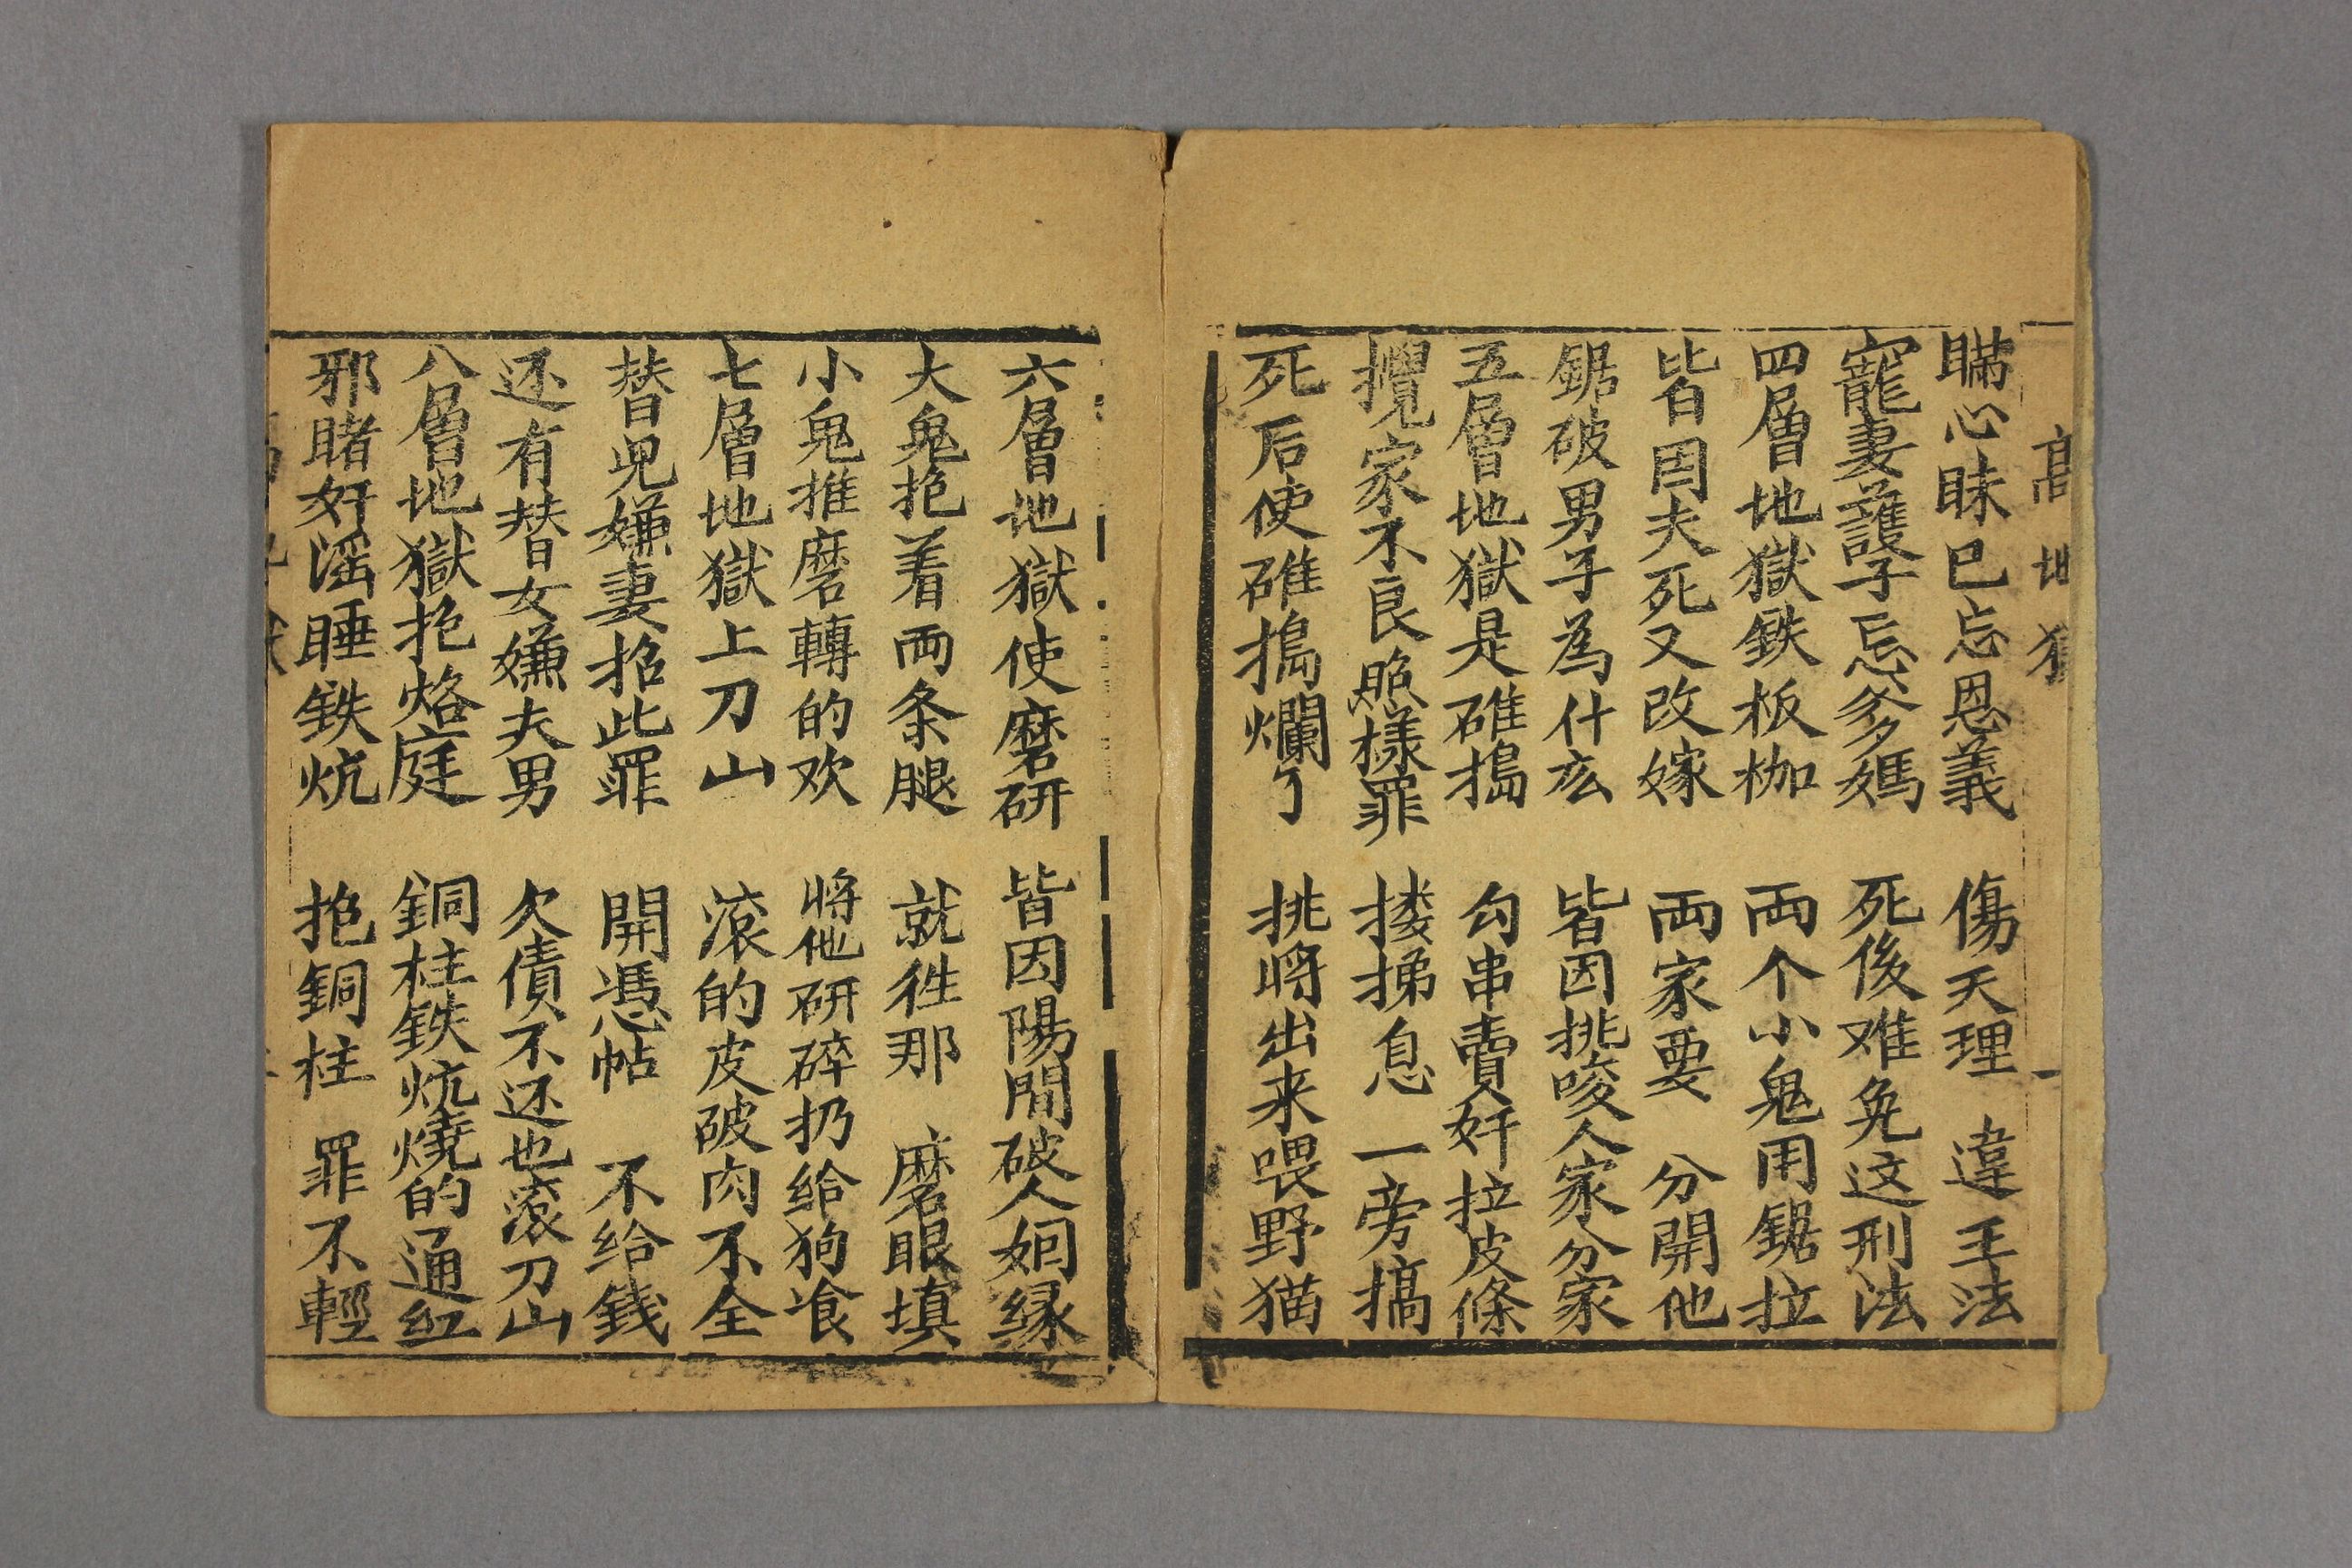 高 地 獄
瞞心昧已忘恩義 傷天理 違王法
寵妻護子忘爹媽 死後难免这刑法
四層地獄鉄板枷 両个小鬼用鋸拉
皆因夫死又改嫁 両家要 分開他
鋸破男子為什庅 皆因挑唆人家分家
五層地獄是碓搗 勾串賣奸拉皮條
攪家不良照樣罪 搂挮息 一旁搞
死后使碓搗爛了 挑將出来喂野猫
六層地獄使磨研 皆因陽間破人姻縁
大鬼抱着両条腿 就徃那 磨眼填
小鬼推磨轉的欢 將他研碎扔给狗飡
七層地獄上刀山 滚的皮破肉不全
替児嫌妻招此罪 開憑帖 不给錢
还有替女嫌夫男 欠債不还也滚刀山
八層地獄抱烙庭 銅柱鉄炕燒的通红
邪睹奸滛睡鉄炕 抱銅柱 罪不輕